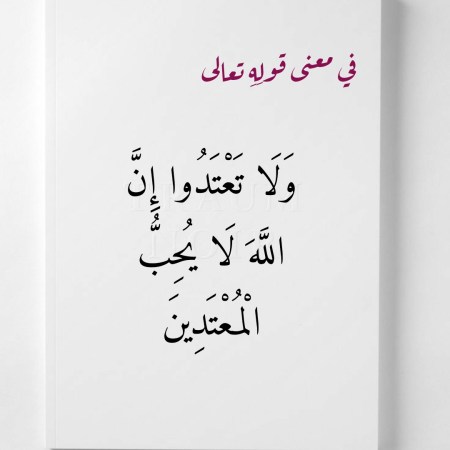 في معنى قولِهِ تعالى
وَلَا تَعْتَدُوا إِنَّ
اللَّهَ لَا يُحِبُّ
الْمُعْتَدِينَ